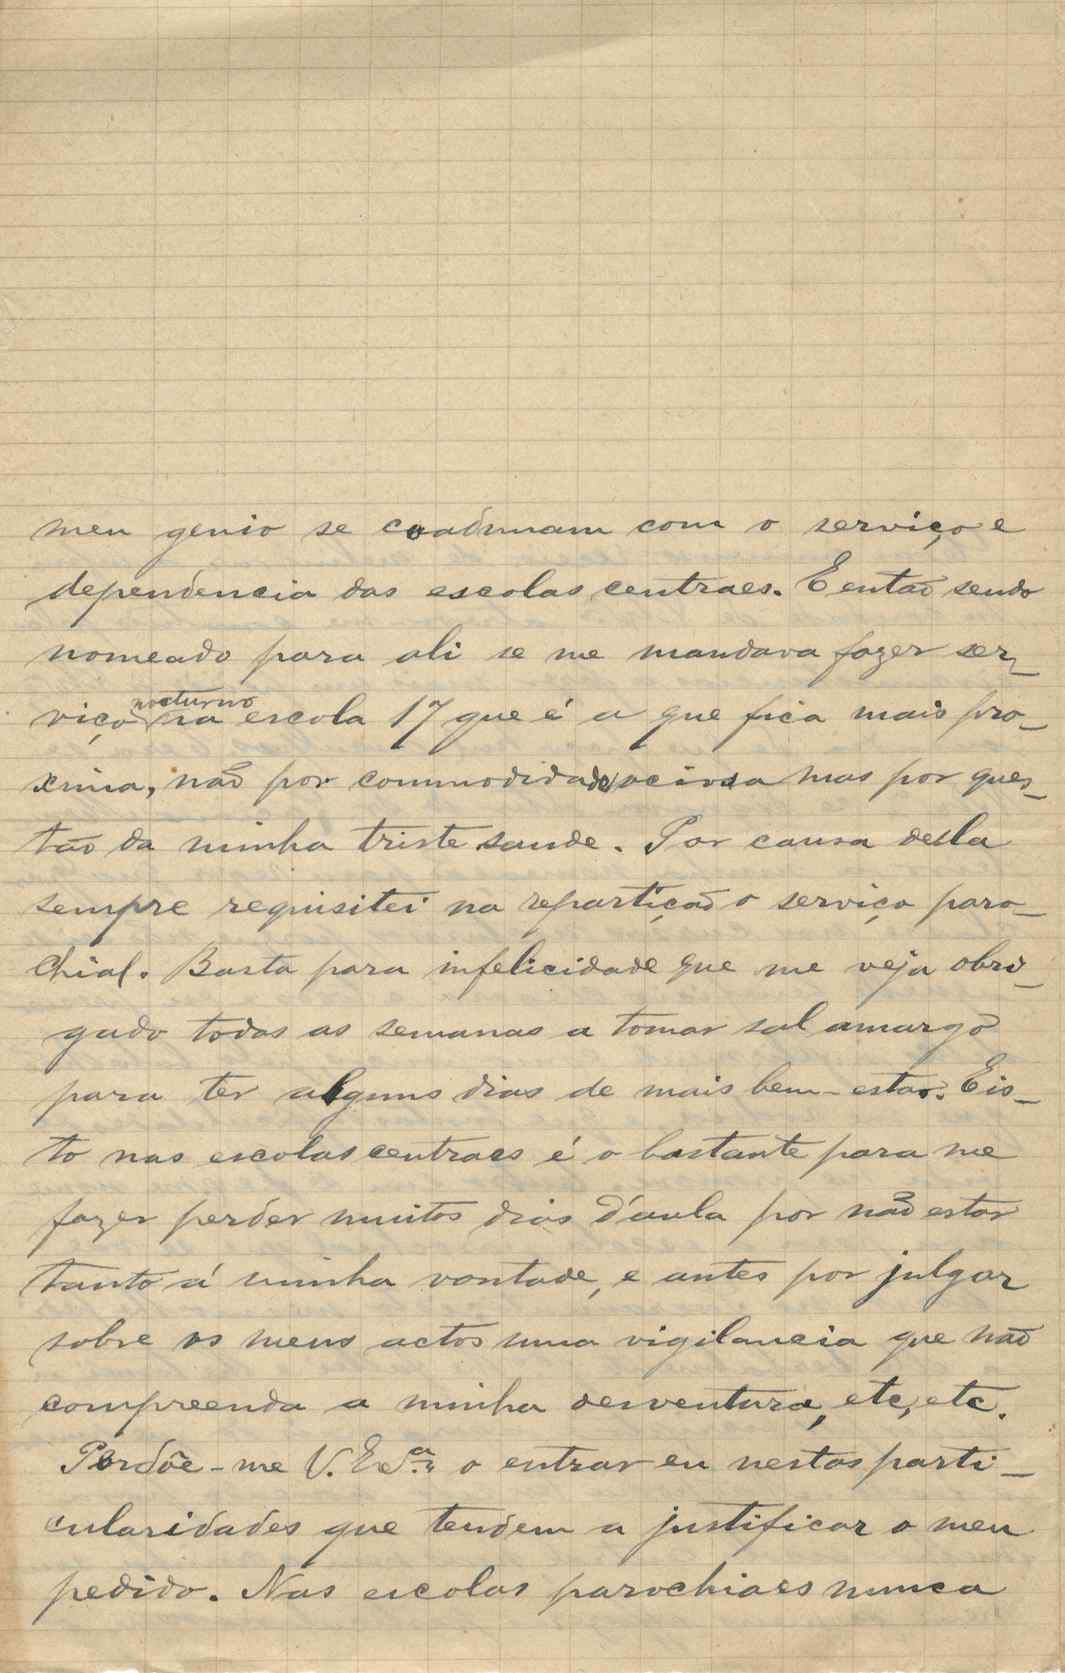 meu genio se coadunam com o serviço e
dependencia das escolas centraes. E então sendo
nomeado para ali se me mandava fazer ser-
viço nocturno na escola 17 que é a que fica mais pro-
xima, não por commodidade ociosa mas por ques-
tão da minha triste saude. Por causa desla
sempre requisitei na repartição o serviço paro-
chial. Basta para infelicidade que me veja obri-
gado todas as semanas a tomar sal amargo
para ter alguns dias de mais bem-estar. E is-
to nas escolas centraes é o bastante para me
fazer perder muitos dias d'aula por não estar
tanto á minha vontade, e antes por julgar
sobre os meus actos uma vigilancia que não
compreenda a minha desventura, etc, etc.
Perdôe-me V. Ex.ª o entrar eu nestas parti-
cularidades que tendem a justificar o meu
pedido. Nas escolas parochiaes nunca